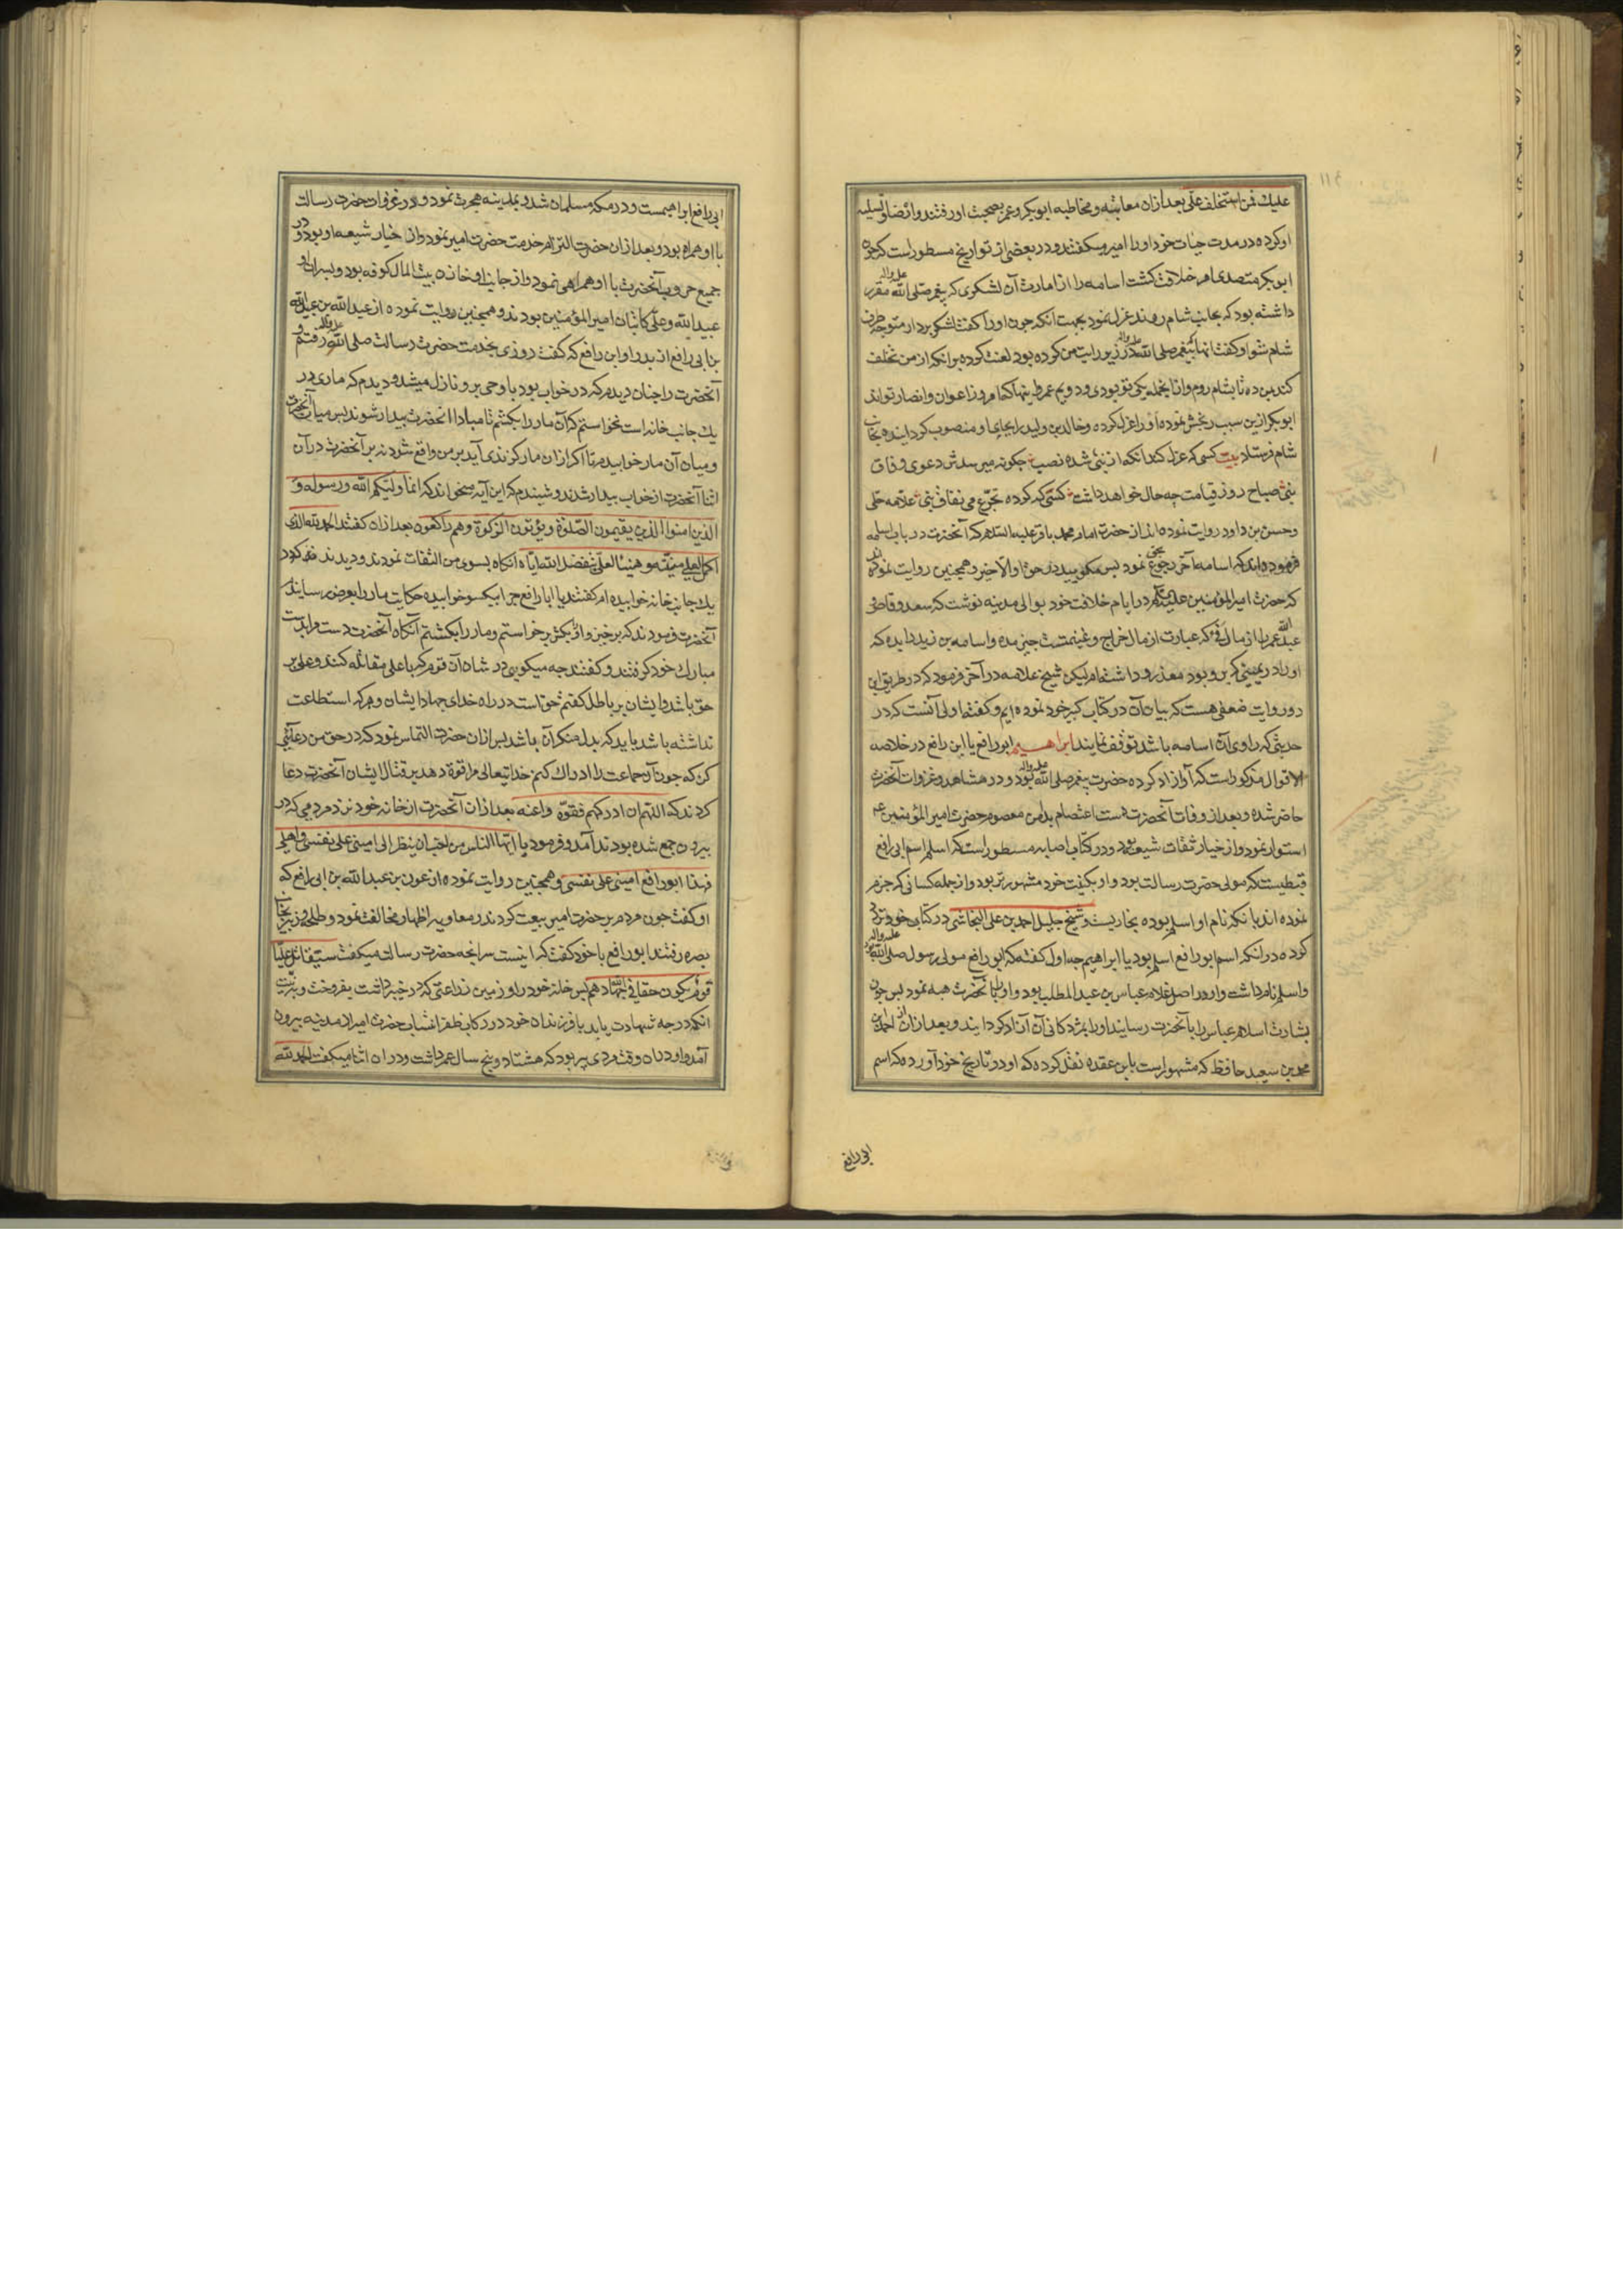 علیك فمن استخلف علی بعد ازان معاتبه و مخاطبه ابوبكر و عمر بصحبت او رفتند و ارضا و تسلیه
او كرده در مدت حیات خود او را امیر میكفتند و در بعضی از تواریخ مسطور است كه چون
ابوبكر متصدی امر خلافت كشت اسامه را از امارت آن لشكری كه پیغمبر صلی الله علیه واله مقرر
داشته بود كه بجانب شام روند عزل نمود بجهت آنكه چون او را كفت لشكر بردار متوجه طرف
شام شو او كفت انها كه پیغمبر صلی الله علیه واله در زیر رایت من كرده بود لعنت كرده بر انكه از من تخلف
كند بمن ده تا بشام روم و از انجمله یكی تو بودی و دویم عمر و اینها كه امروز اعوان و انصار تواند
ابوبكر ازین سبب رنجش نموده او را عزل كرده و خالد بن ولید را بجای او منصوب كردانیده بجانب
شام فرستاد بیت كسی كه عزل كند آنكه از نبی شده نصب چكونه میرسدش دعوی وفاق
نبی صباح روز قیامت چه حال خواهد داشت كسی كه كرده تجرع می نفاق نبی علامه حلی
و حسن بن داود روایت نموده اند از حضرت امام محمد باقر علیه السلام كه آنحضرت در باب اسامه
فرموده اند كه اسامه آخر رجوع بحق نمود پس مكویید در حق او الا خیر و همچنین روایت نموده اند
كه حضرت امیر المؤمنین علیه السلام در ایام خلافت خود بوالی مدینه نوشت كه سعد وقاص و
عبد الله عمر را از مال فئ كه عبارت از مال خراج و غنیمتست چیز مده و اسامه بن زید را بده كه
او را در یمینی كه برو بود معذور داشته ام لیكن شیخ علامه در آخر فرمود كه در طریق این
دو روایت ضعفی هست كه بیان آن در كتاب كبیر خود نموده ایم و كفته اولی آنست كه در
حدیثی كه راوی آن اسامه باشد توقف نمایند ابراهیم ابو رافع یا ابن رافع در خلاصه
الاقوال مذكور است كه آواز اد كرده حضرت پیغمبر صلی الله علیه واله بود و در مشاهد و غزوات آنحضرت
حاضر شده و بعد از وفات آنحضرت دست اعتصام بدامن معصوم حضرت امیر المؤمنین ع م
استوار نمود و از خیار ثقات شیعه بود و در كتاب اصابه مسطور است كه اسلم اسم ابی رافع
قبطیست كه مولی حضرت رسالت بود و او بكنیت خود مشهورتر بود و از جمله كسانی كه جزم
نموده اند بانكه نام او اسلم بوده بخاریست و شیخ جلیل احمد بن علی النجاشی در كتاب خود تردد
كرده در انكه اسم ابو رافع اسلم بود یا ابراهیم چه اول كفته كه ابو رافع مولی رسول صلی الله علیه واله بود
و اسلم نام داشت و او در اصل غلام عباس بن عبد المطلب بود و او را بآنحضرت هبه نمود پس چون
بشارت اسلام عباس را بآنحضرت رسانید او را بمژدكانی آن آزاد كردانید و بعد ازان از احمد بن
محمد بن سعید حافظ كه مشهور است بابن عقده نقل كرده كه او در تاریخ خود آورده كه اسم
ابی رافع
ابی رافع ابراهیمست و در مكه مسلمان شد و بمدینه هجرت نمود و در غزوات حضرت رسالت
با او همراه بود و بعد از ان حضرت التزام خدمت حضرت امیر نمود و از خیار شیعه او بود و در
جمیع حروب آنحضرت با او همراهی نمود و از جانب او خازن بیت المال كوفه بود و پسران او
عبید الله و علی كاتبان امیر المؤمنین بودند و همچنین روایت نموده از عبد الله بن عبید الله
بن ابی رافع از پدر او ابن رافع كه كفت روزی بخدمت حضرت رسالت صلی الله علیه واله رفتم و
آنحضرت را چنان دیدم كه در خواب بود یا وحی برو نازل میشد و دیدم كه ماری در
یك جانب خانه است نخواستم كه آن مار را بكشم تا مبادا آنحضرت بیدار شوند پس میان آنحضرت
و میان آن مار خوابیدم تا اكر ازان مار كزندی آید بر من واقع شود نه بر آنحضرت در آن
اثنا آنحضرت از خواب بیدار شدند و شنیدم كه این آیه میخواند كه انما ولیكم الله ورسوله و
الذین امنوا الذین یقیمون الصلوة ویؤتون الزكوة وهم راكعون بعد ازان كفتند الحمد لله الذی
اكمل لعلی منیته وهنیئا لعلی بتفضیل الله ایاه آنكاه بسوی من التفات نمودند و دیدند كه در
یك جانب خانه خوابیده ام كفتند یا ابا رافع چرا بیكسو خوابیده حكایت مار را بعرض رسانیدم
آنحضرت فرمودند كه برخیز و او را بكش برخواستم و مار را بكشتم آنكاه آنحضرت دست مرا بدست
مبارك خود كرفتند و كفتند چه میكویی در شان آن قوم كه با علی مقاتله كنند و علی بر
حق باشد و ایشان بر باطل كفتم حق است در راه خدای جهاد ایشان و هر كه استطاعت
نداشته باشد باید كه بدل منكر آن باشد پس ازان حضرت التماس نمود كه در حق من دعائی
كن كه چون آن جماعت را ادراك كنم خدایتعالی مرا قوة دهد بر قتال ایشان آنحضرت دعا
كردند كه اللهم ان ادركهم فقوه واعنه بعد ازان آنحضرت از خانه خود نزد مردمی كه در
بیرون جمع شده بودند آمد و فرمود یا ایها الناس من احب ان ینظر الی امینی علی نفسی واهلی
فهذا ابو رافع امینی علی نفسی و همچنین روایت نموده از عون بن عبد الله بن ابی رافع كه
او كفت چون مردم بر حضرت امیر بیعت كردند و معاویه اظهار مخالفت نمود و طلحه و زبیر بجانب
بصره رفتند ابو رافع با خود كفت كه اینست سر انچه حضرت رسالت میكفت سیقاتل علیا
قوم یكون حقا فی الله جهادهم پس خانه خود را و زمین زراعتی كه در خیبر داشت بفروخت و به نیت
انكه درجه شهادت یابد با فرزندان خود در ركاب ظفر انتساب حضرت امیر از مدینه بیرون
آمد و او در ان وقت مردی پیر بود كه هشتاد و پنج سال عمر داشت و در ان اثنا میكفت الحمد لله